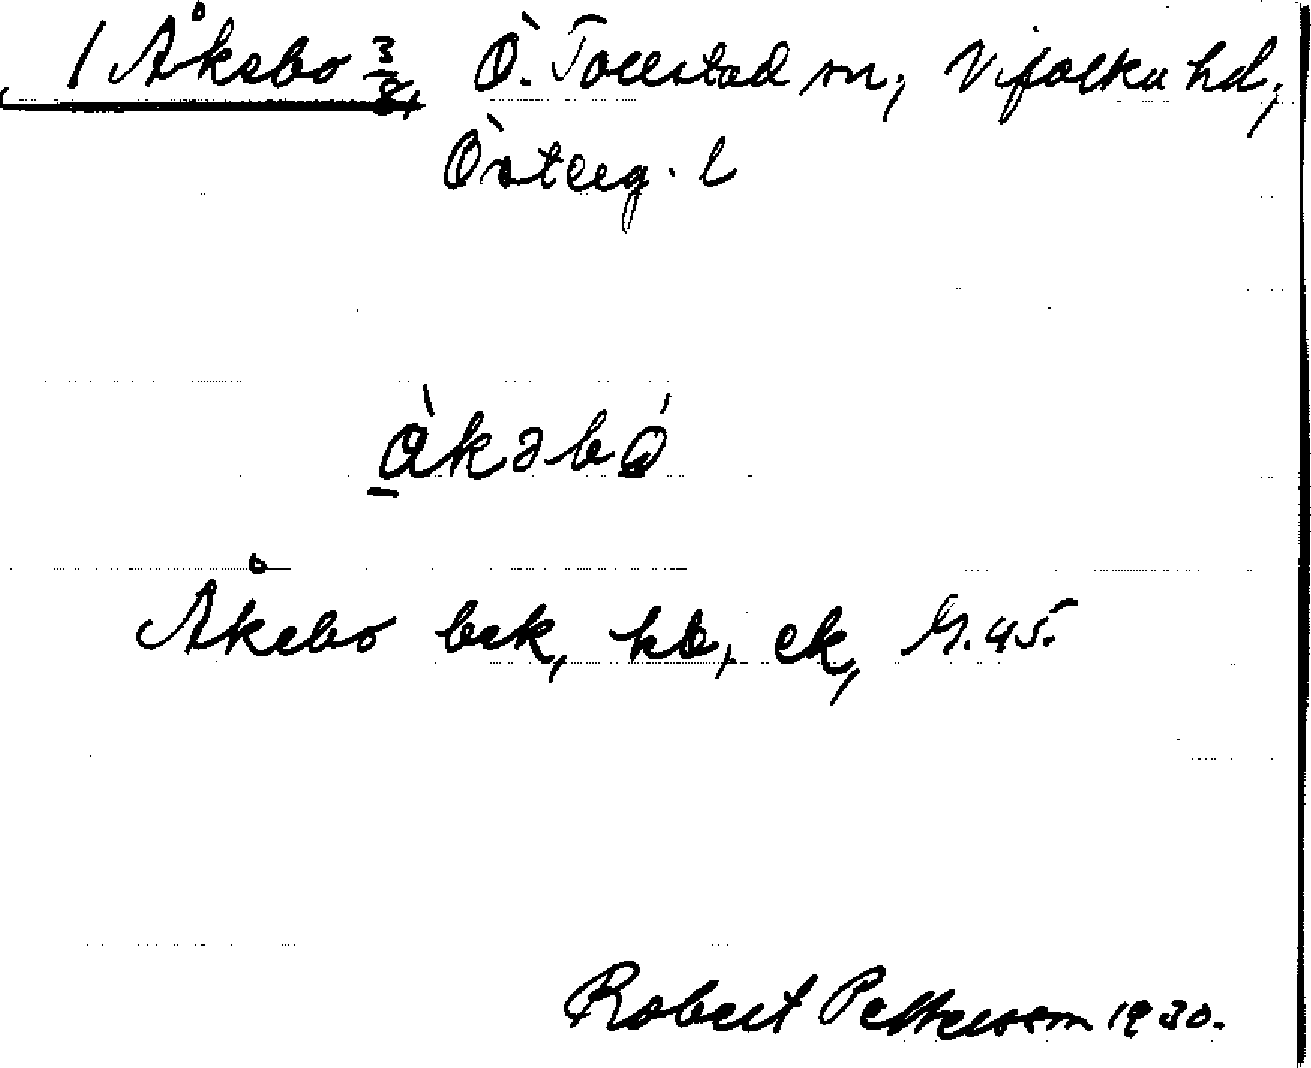 1 Åkebo 3/8, Ö. Tollstad sn, Vifolka hd,
Österg. l
åkəbo
Åkebo bek, kb, ek, G. 45.
Robert Pettersson 1930.